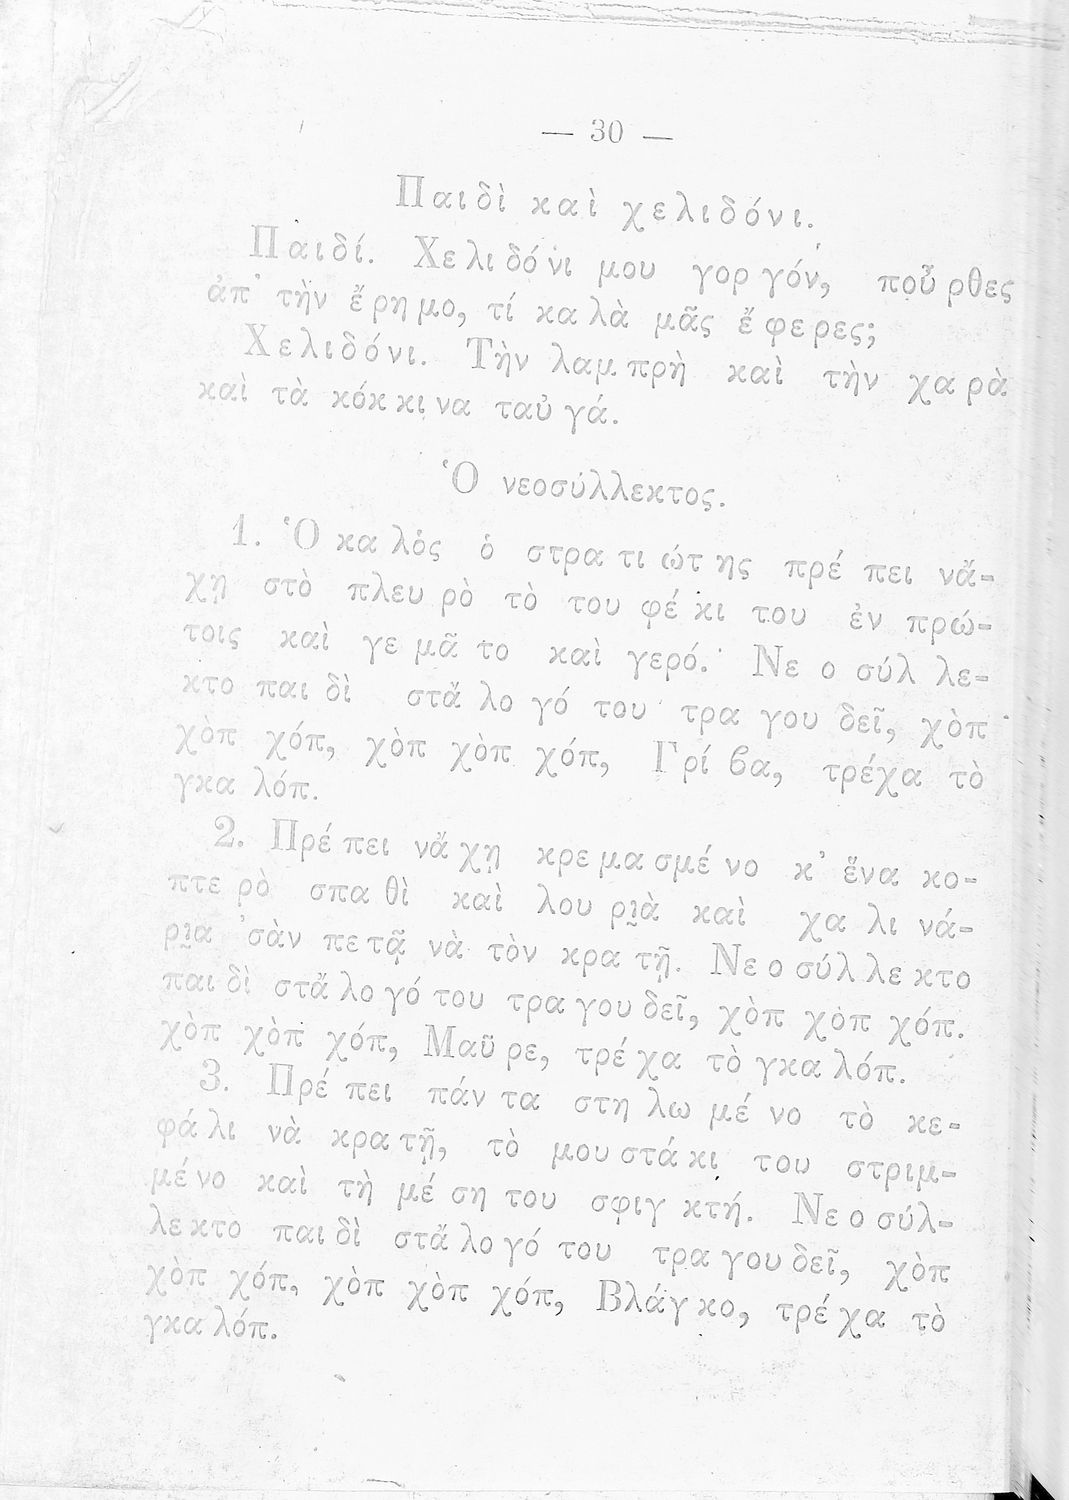 — 30 —
Παιδὶ καὶ χελιδόνι.
Παιδί. Χε λι δό νι μου γορ γόν, ποὖ ρθες
ἀπ' τὴν ἔ ρη μο, τί κα λὰ μᾶς ἔ φε ρες;
Χελιδόνι. Τὴν λαμ πρὴ καὶ τὴν χα ρὰ
καὶ τὰ κόκ κι να ταὐ γά.
Ὁ νεοσύλλεκτος.
1. Ὁ κα λὸς ὁ στρα τι ώτ ης πρέ πει νἄ-
χῃ στὸ πλευ ρὸ τὸ του φέ κι του ἐν πρώ-
τοις καὶ γε μᾶ το καὶ γερό. Νε ο σύλ λε-
κτο παι δὶ στἄ λο γό του τρα γου δεῖ, χὸπ
χὸπ χόπ, χὸπ χὸπ χόπ, Γρί βα, τρέχα τὸ
γκα λόπ.
2. Πρέ πει νἄ χῃ κρε μα σμέ νο κ' ἕνα κο-
πτε ρὸ σπα θὶ καὶ λου ριὰ καὶ χα λι νά-
ρια 'σὰν πε τᾷ νὰ τὸν κρα τῇ. Νε ο σύλ λε κτο
παι δὶ στἄ λο γό του τρα γου δεῖ, χὸπ χὸπ χόπ.
χὸπ χὸπ χόπ, Μαῦ ρε, τρέ χα τὸ γκα λόπ.
3. Πρέ πει πάν τα στη λω μέ νο τὸ κε-
φά λι νὰ κρα τῇ, τὸ μου στά κι του στριμ-
μέ νο καὶ τὴ μέ ση του σφιγ κτή. Νε ο σύλ-
λε κτο παι δὶ στἄ λο γό του τρα γου δεῖ, χὸπ
χὸπ χόπ, χὸπ χὸπ χόπ, Βλάγ κο, τρέ χα τὸ
γκα λόπ.